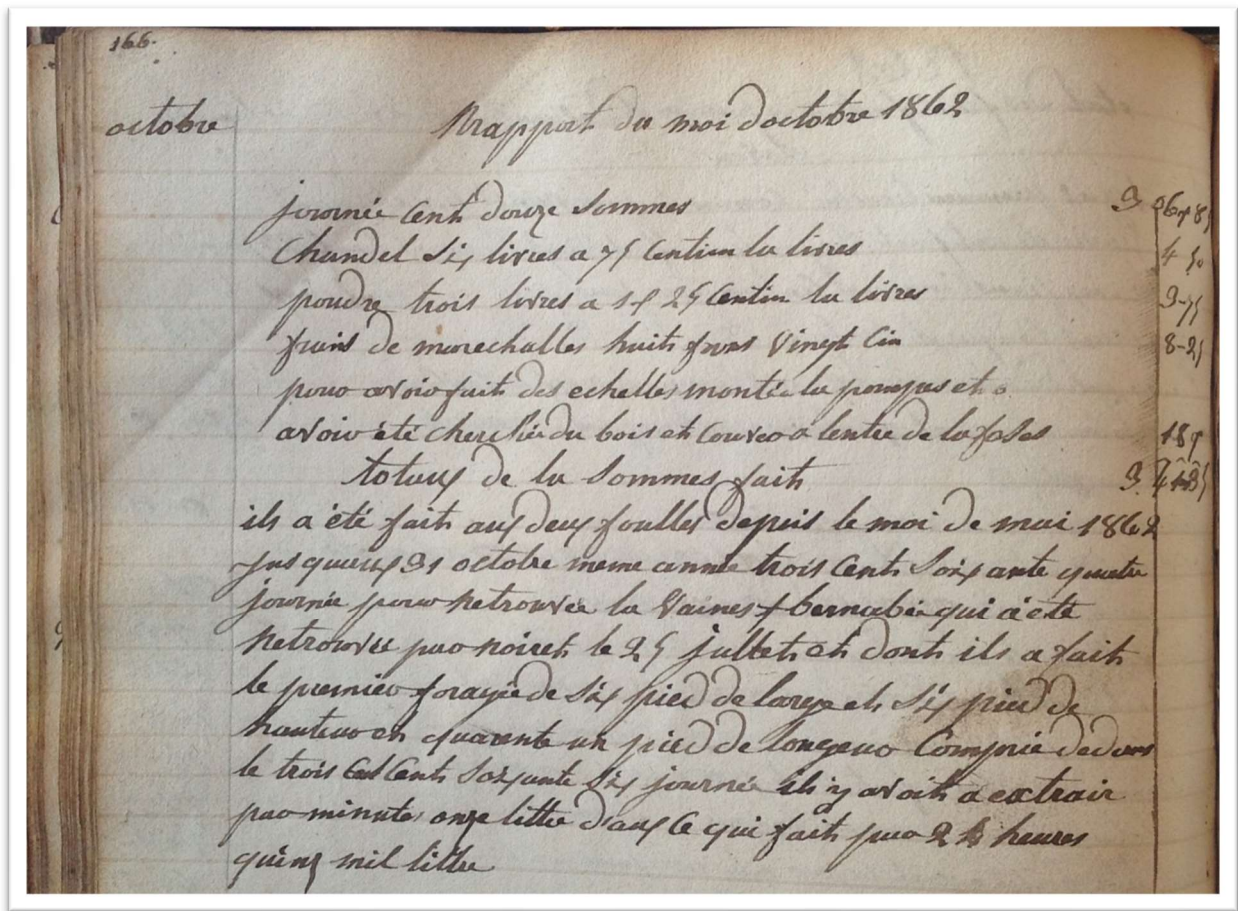 166.
octobre Rapport du moi doctobre 1862
journée Cent douze Sommes 3
Chandel Six livres a 75 Centim la livres 4 50
poudre trois livres a 1f 25 Centim la livres 3-75
frais de marechalles huit fran Vingt Cin 8-25
pour avoir fait des echelles montée la pompes et
avoir été cherchée du bois et Couvero a lentre de la foses 18
totaux de la Sommes fait 3
ils a été fait aux deux foulles depuis le moi de mai 1862
jusquaux 31 octobre meme année trois Cent Soixante quatre
journée pour Retrouvée la Vaines f barnabée qui a été
Retrouvée par noiret le 25 jullet et dont ils a fait
le premier foragée de Six pied de large et Six pied de
hauteur et quarente un pied de longeuo Comprie dedans
le trois Cent Soixante Six journée ils y avoit a extrair
par minutes onze littre d'aux Ce qui fait par 24 heures
quinz mil littre